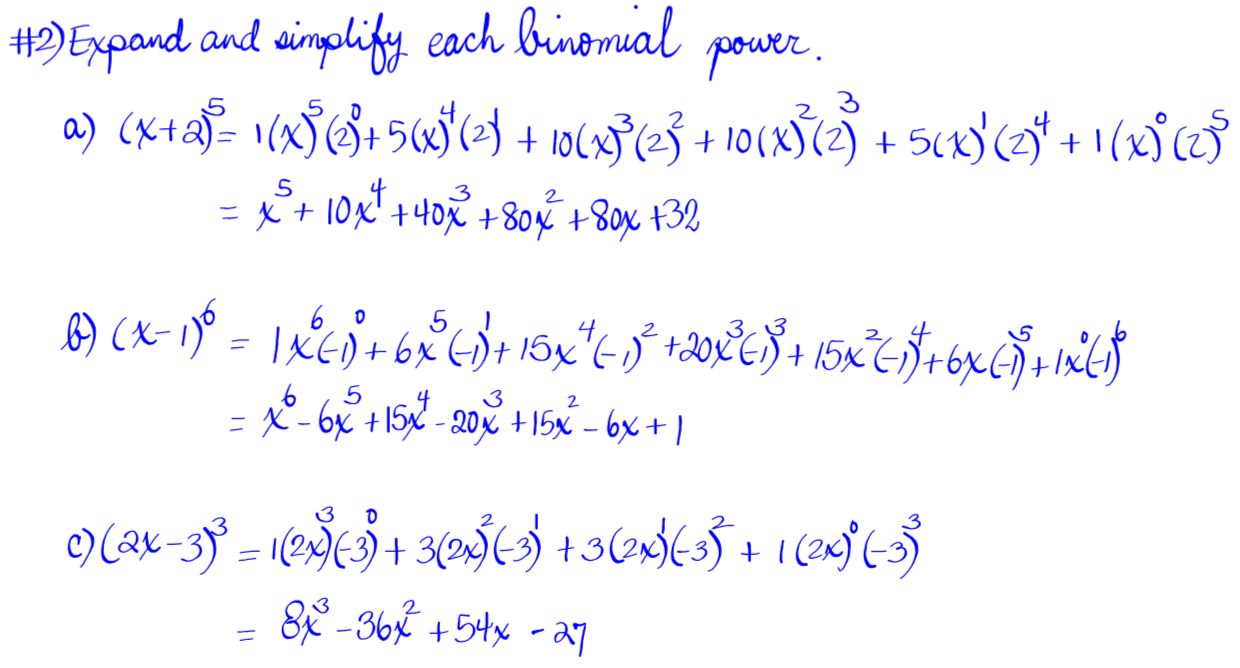 #2) Expand and simplify each binomial power.
a) (x+2)⁵ = 1(x)⁵(2)⁰ + 5(x)⁴(2)¹ + 10(x)³(2)² + 10(x)²(2)³ + 5(x)¹(2)⁴ + 1(x)⁰(2)⁵
= x⁵ + 10x⁴ + 40x³ + 80x² + 80x + 32
b) (x-1)⁶ = 1x⁶(-1)⁰ + 6x⁵(-1)¹ + 15x⁴(-1)² + 20x³(-1)³ + 15x²(-1)⁴ + 6x(-1)⁵ + 1x⁰(-1)⁶
= x⁶ - 6x⁵ + 15x⁴ - 20x³ + 15x² - 6x + 1
c) (2x-3)³ = 1(2x)³(-3)⁰ + 3(2x)²(-3)¹ + 3(2x)¹(-3)² + 1(2x)⁰(-3)³
= 8x³ - 36x² + 54x - 27